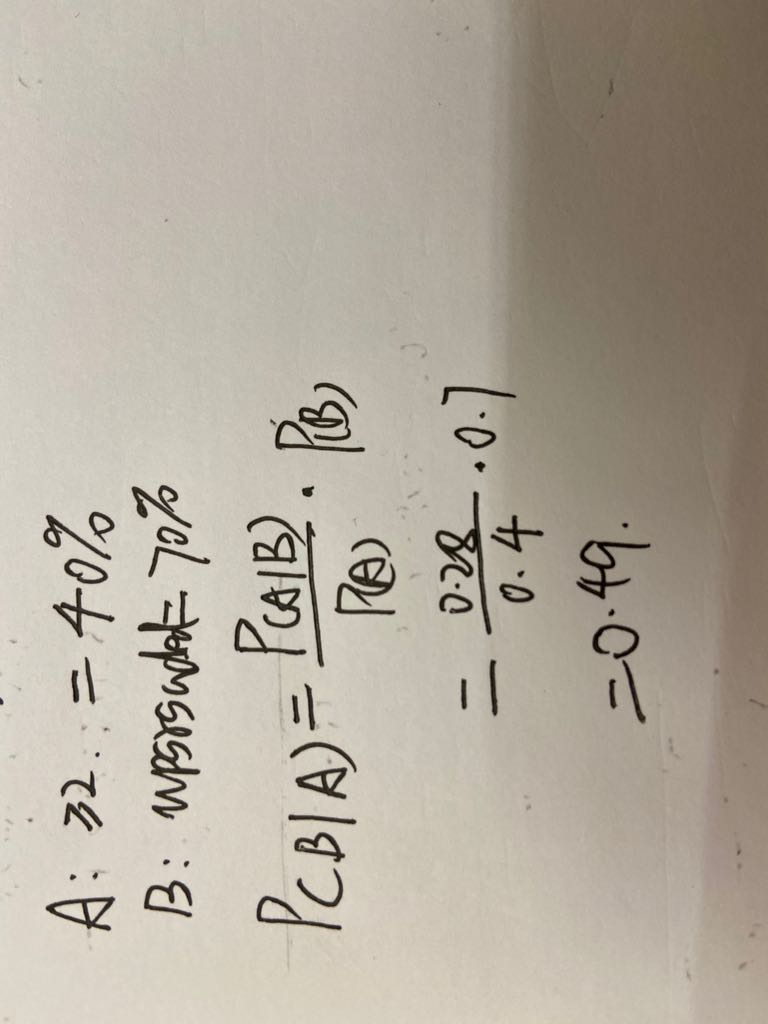 A: ≥2. = 40%
B: = 70%
P(B|A) = P(A|B)/P(A) · P(B)
= 0.28/0.4 · 0.7
= 0.49.